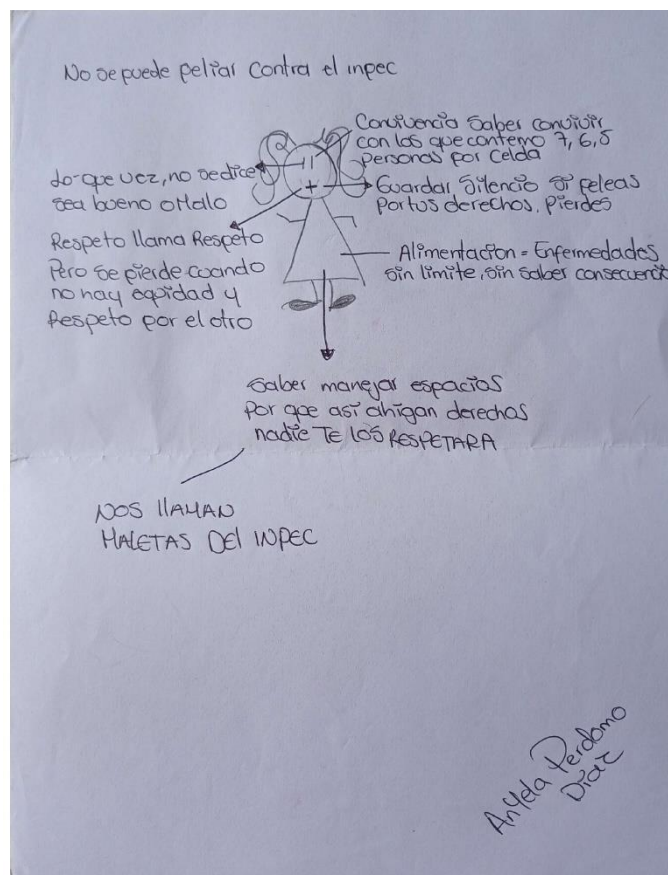 No se puede peliar contra el inpec
Convivencia saber convivir
con los que contemo 7, 6, 5
personas por celda
Lo que vez, no se dice
sea bueno o Malo
Guardar silencio si peleas
por tus derechos, pierdes
Respeto llama Respeto
Pero se pierde cuando
no hay equidad y
Respeto por el otro
Alimentacion = Enfermedades
sin limite, sin saber consecuencia
Saber manejar espacios
por que asi ahigan derechos
nadie TE LOS RESPETARA
NOS llAMAN
MALETAS DEl INPEC
Anyela Perdomo
Diaz